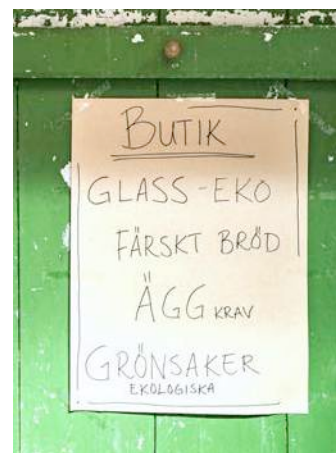 BUTIK
GLASS-EKO
FÄRSKT BRÖD
ÄGG KRAV
GRÖNSAKER
EKOLOGISKA